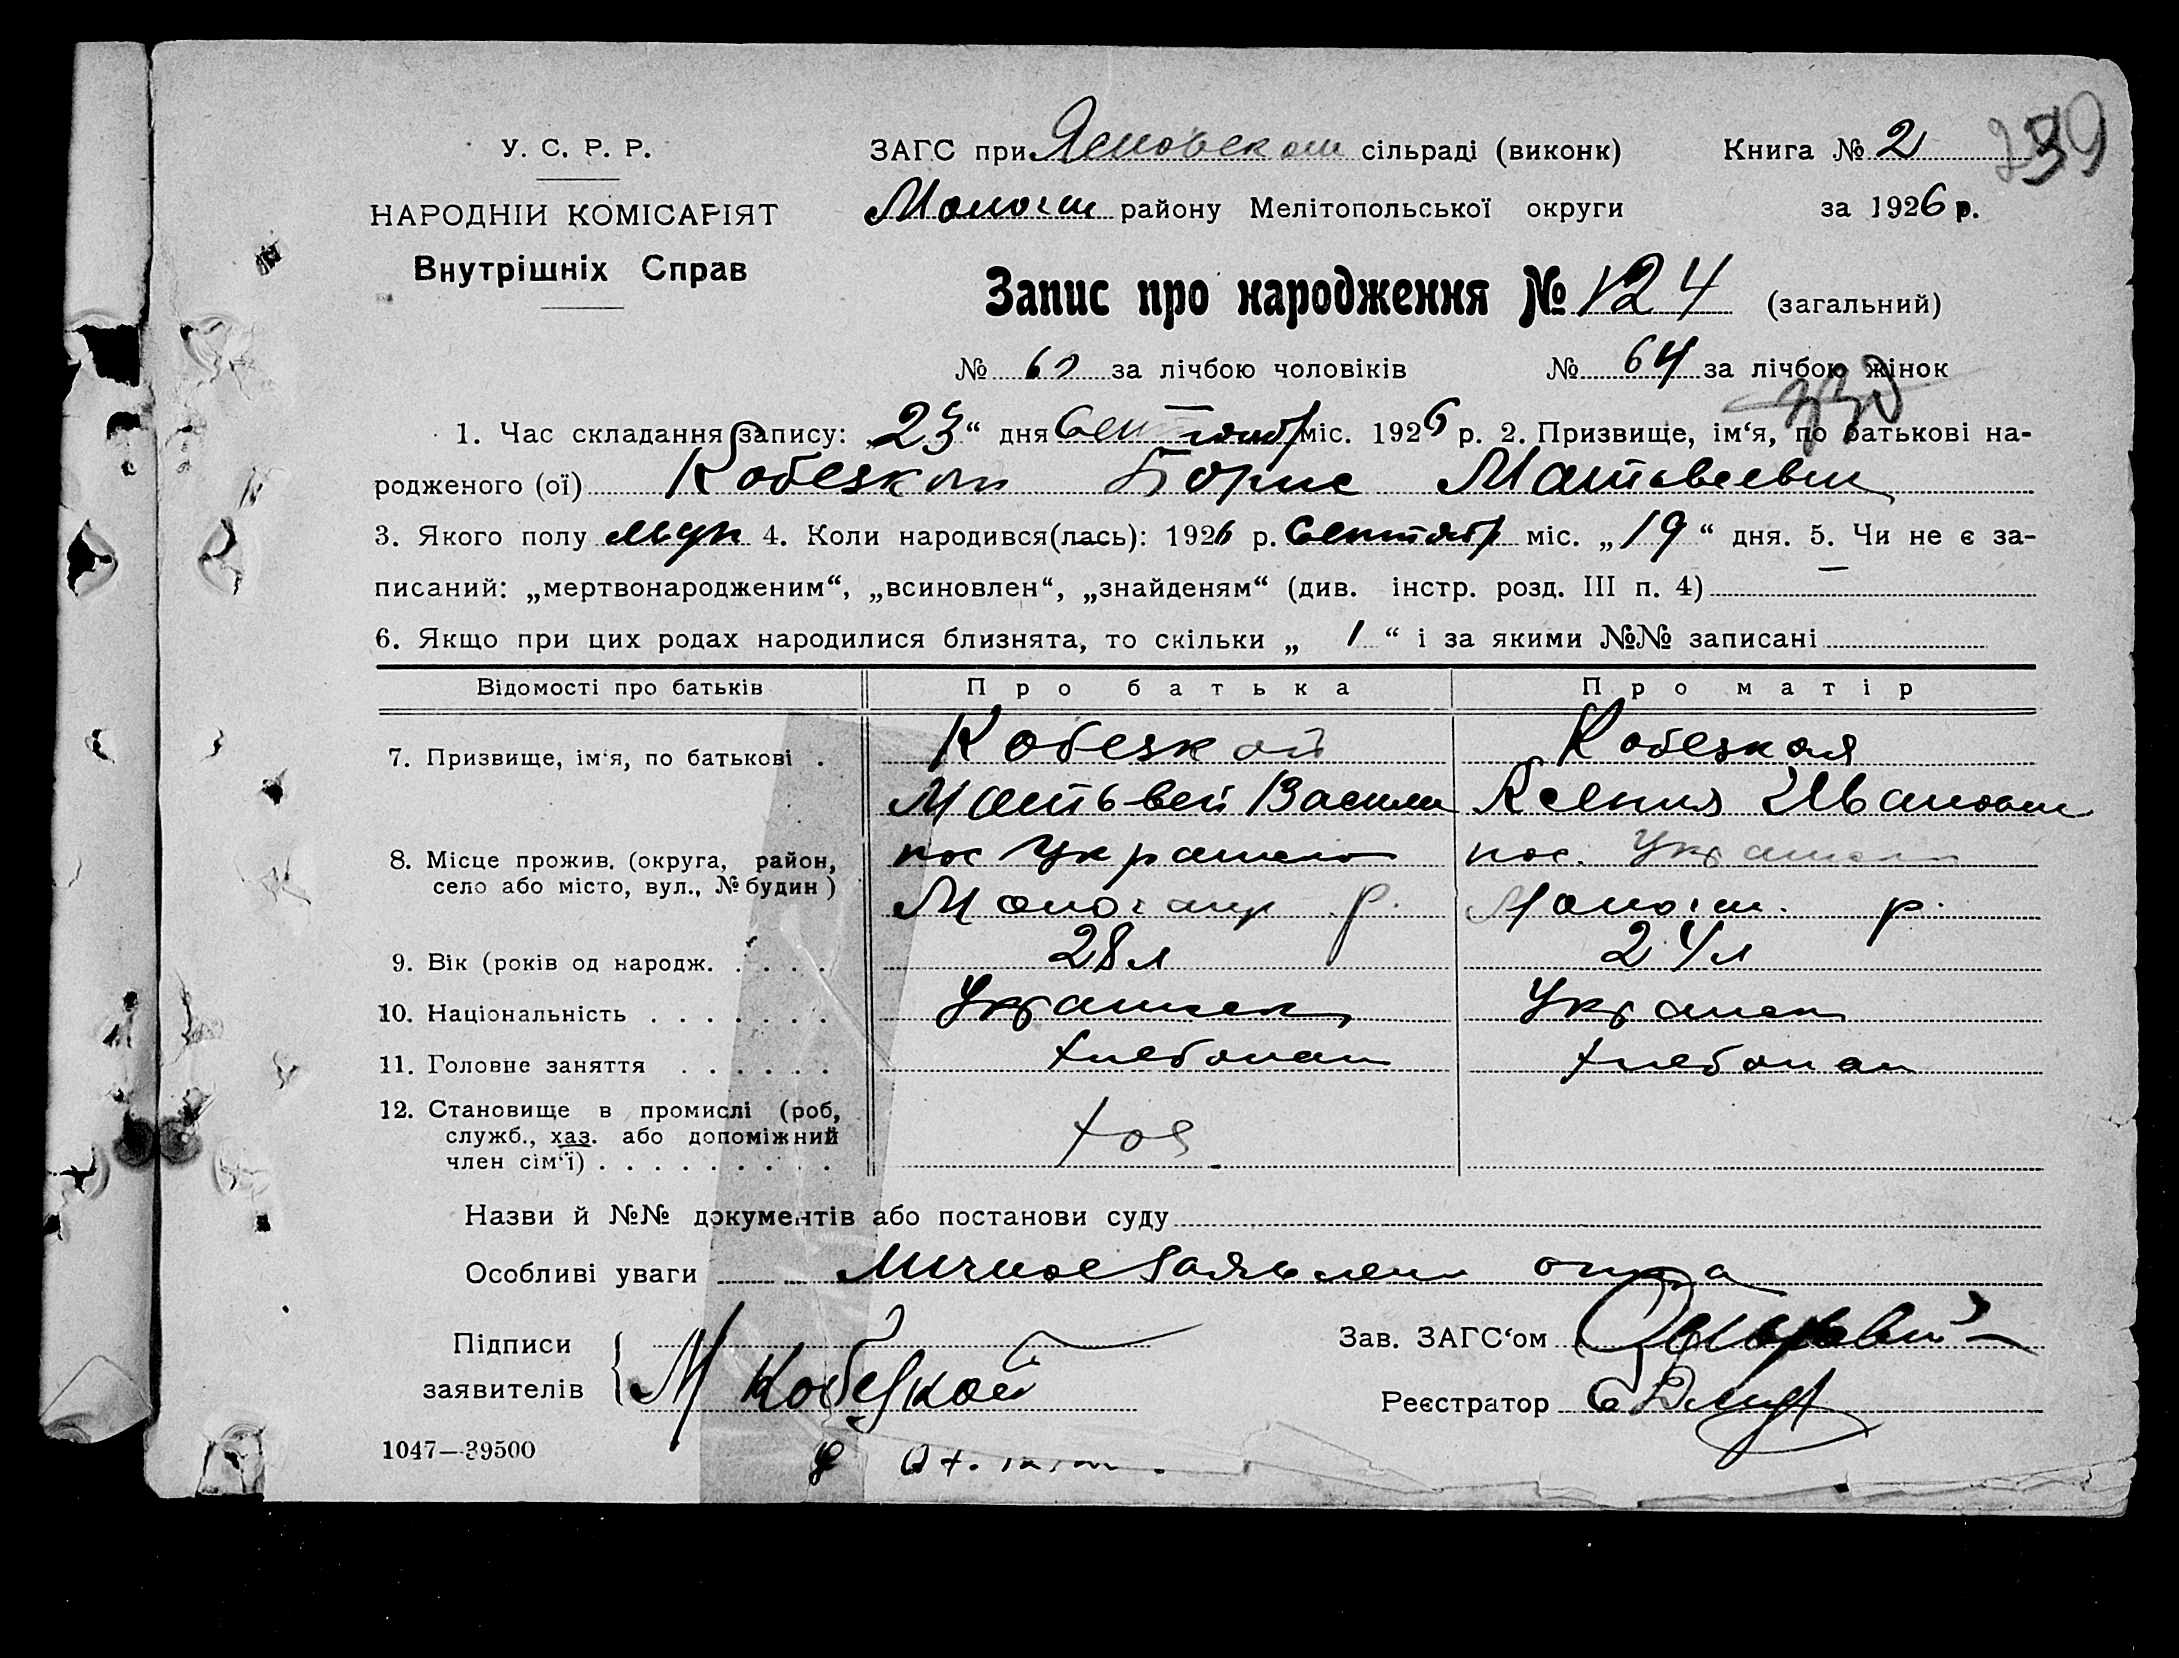 239
У. С. Р. Р.
ЗАГС при сільраді (виконк) Книга № 2
НАРОДНІЙ КОМІСАРІЯТ
району Мелітопольської округи за 1926 р.
Внутрішніх Справ
Запис про народження № 124 (загальний)
№ 60 за лічбою чоловіків № 64 за лічбою жінок
1. Час складання запису: 23 “ дня Сентября міс. 1926 р. 2. Призвище, ім‘я, по батькові на-
родженого (ої) Кобезкой Борис Матвеевич
3. Якого полу муж 4. Коли народився(лась): 1926 р. Сентябр міс. „ 19 “ дня. 5. Чи не є за-
писаний: „мертвонародженим“, „всиновлен“, „знайденям“ (див. інстр. розд. III п. 4) —
6. Якщо при цих родах народилися близнята, то скільки „ 1 “ і за якими №№ записані
Відомості про батьків Про батька Про матір
7. Призвище, ім‘я, по батькові . Кобезкой Кобезкая
Матьвей Васили Ксения Иванови
8. Місце прожив. (округа, район, пос Украинка пос. Украинка
село або місто, вул., № будин) р. р.
9. Вік (років од народж. . . . . 28 л 24 л
10. Національність . . . . . . . Украинец Украинк
11. Головне заняття . . . . . . хлебопаш хлебопаш
12. Становище в промислі (роб,
служб., хаз. або допоміжний хоз.
член сім‘ї) . . . . . . . . . .
Назви й №№ документів або постанови суду
Особливі уваги Личное заявление отца
Підписи Зав. ЗАГС‘ом
заявителів М Кобецкой
Реєстратор
1047—39500